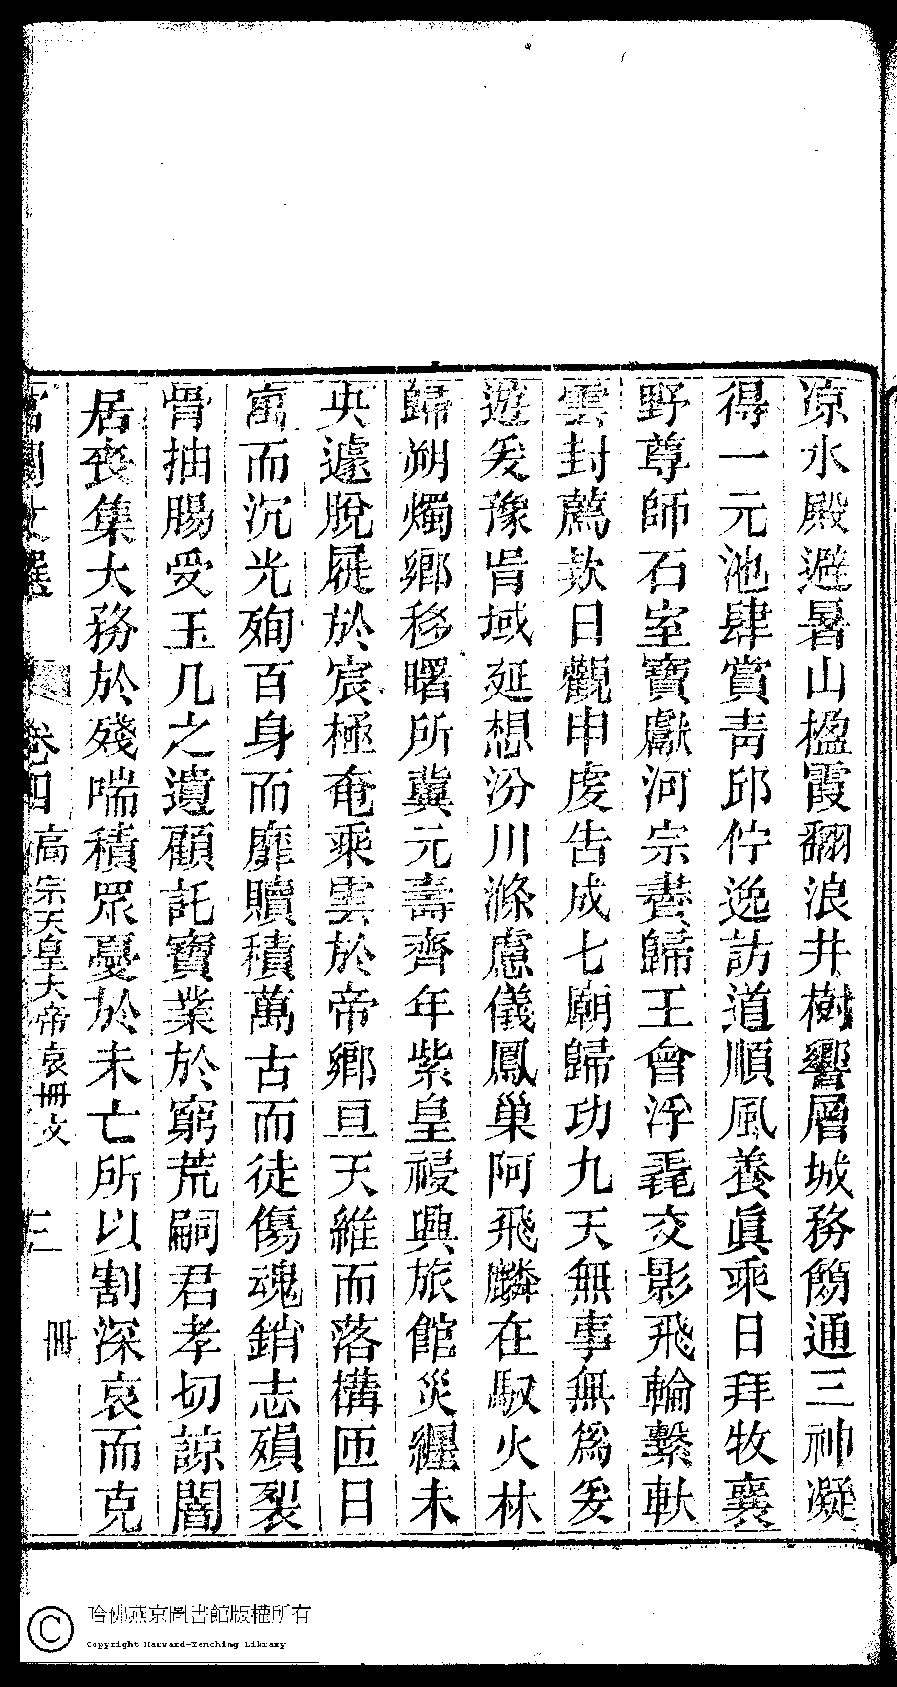 涼水殿避暑山楹霞翻浪井樹響層城務簡通三神凝
得一元池肆賞靑邱佇逸訪道順風養眞乘日拜牧襄
野尊師石室寶獻河宗賮歸王會浮毳交影飛輪繫軑
雲封薦款日觀申虔告成七廟歸功九天無事無爲爰
遊爰豫胥域延想汾川滌慮儀鳳巢阿飛麟在馭火林
歸朔燭鄉移曙所冀元壽齊年紫皇祲興旅館災纏未
央遽脫屣於宸極奄乘雲於帝鄉亘天維而落構匝日
寓而沉光殉百身而靡贖積萬古而徒傷魂銷志殞裂
骨抽腸受玉几之遺顧託寶業於窮荒嗣君孝切諒闇
居喪集大務於殘喘積眾憂於未亡所以割深哀而克
卷四 高宗天皇大帝哀冊文 三 冊
哈佛燕京圖書館版權所有
Copyright Harvard-Yenching Library